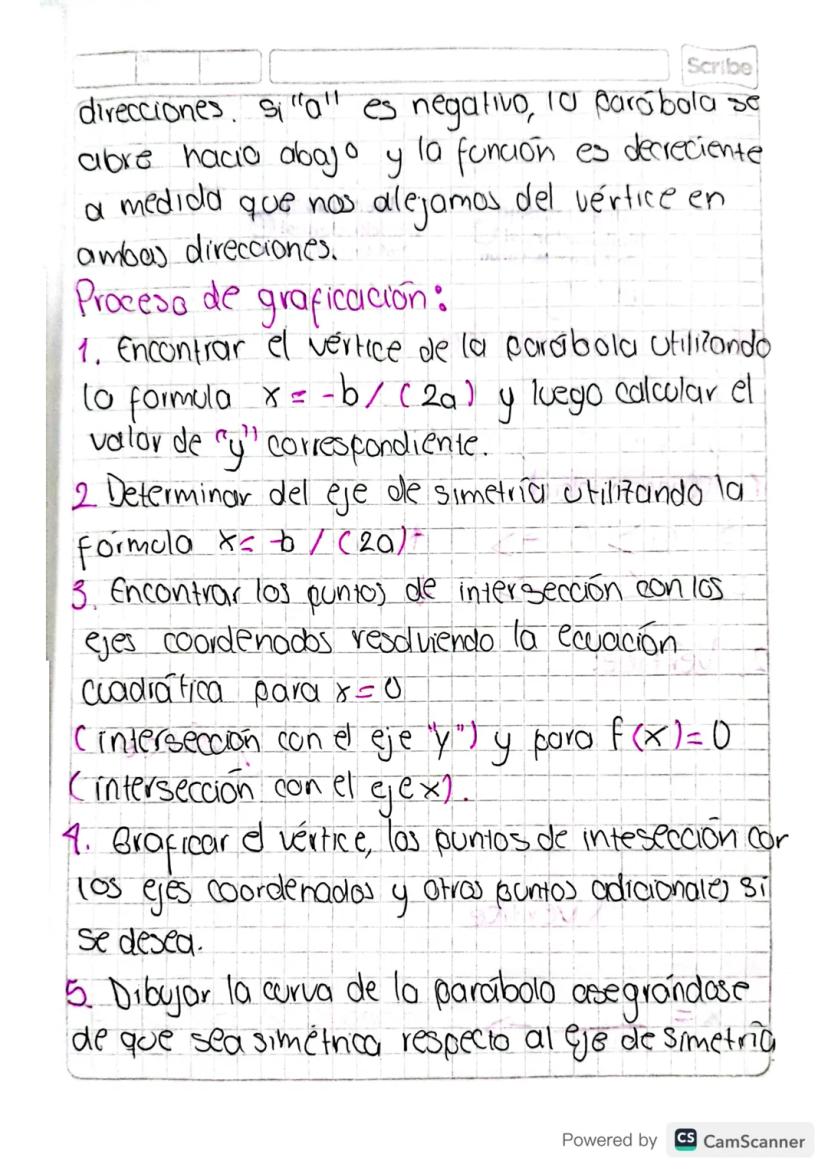 Scribe
direcciones. Si "a" es negativo, la parábola se
abre hacia abajo y la función es decreciente
a medida que nos alejamos del vértice en
ambas direcciones.
Proceso de graficación:
1. Encontrar el vértice de la parábola utilizando
la formula x = -b / (2a) y luego calcular el
valor de "y" correspondiente.
2 Determinar del eje de simetría utilizando la
fórmula x = -b / (2a)
3. Encontrar los puntos de intersección con los
ejes coordenados resolviendo la ecuación
cuadrática para x = 0
(intersección con el eje "y") y para f(x) = 0
(intersección con el eje x).
4. Graficar el vértice, los puntos de inteseccion con
los ejes coordenados y otros puntos adicionales si
se desea.
5. Dibujar la curva de la parábola asegrándose
de que sea simétrica respecto al eje de simetría
Powered by CS CamScanner